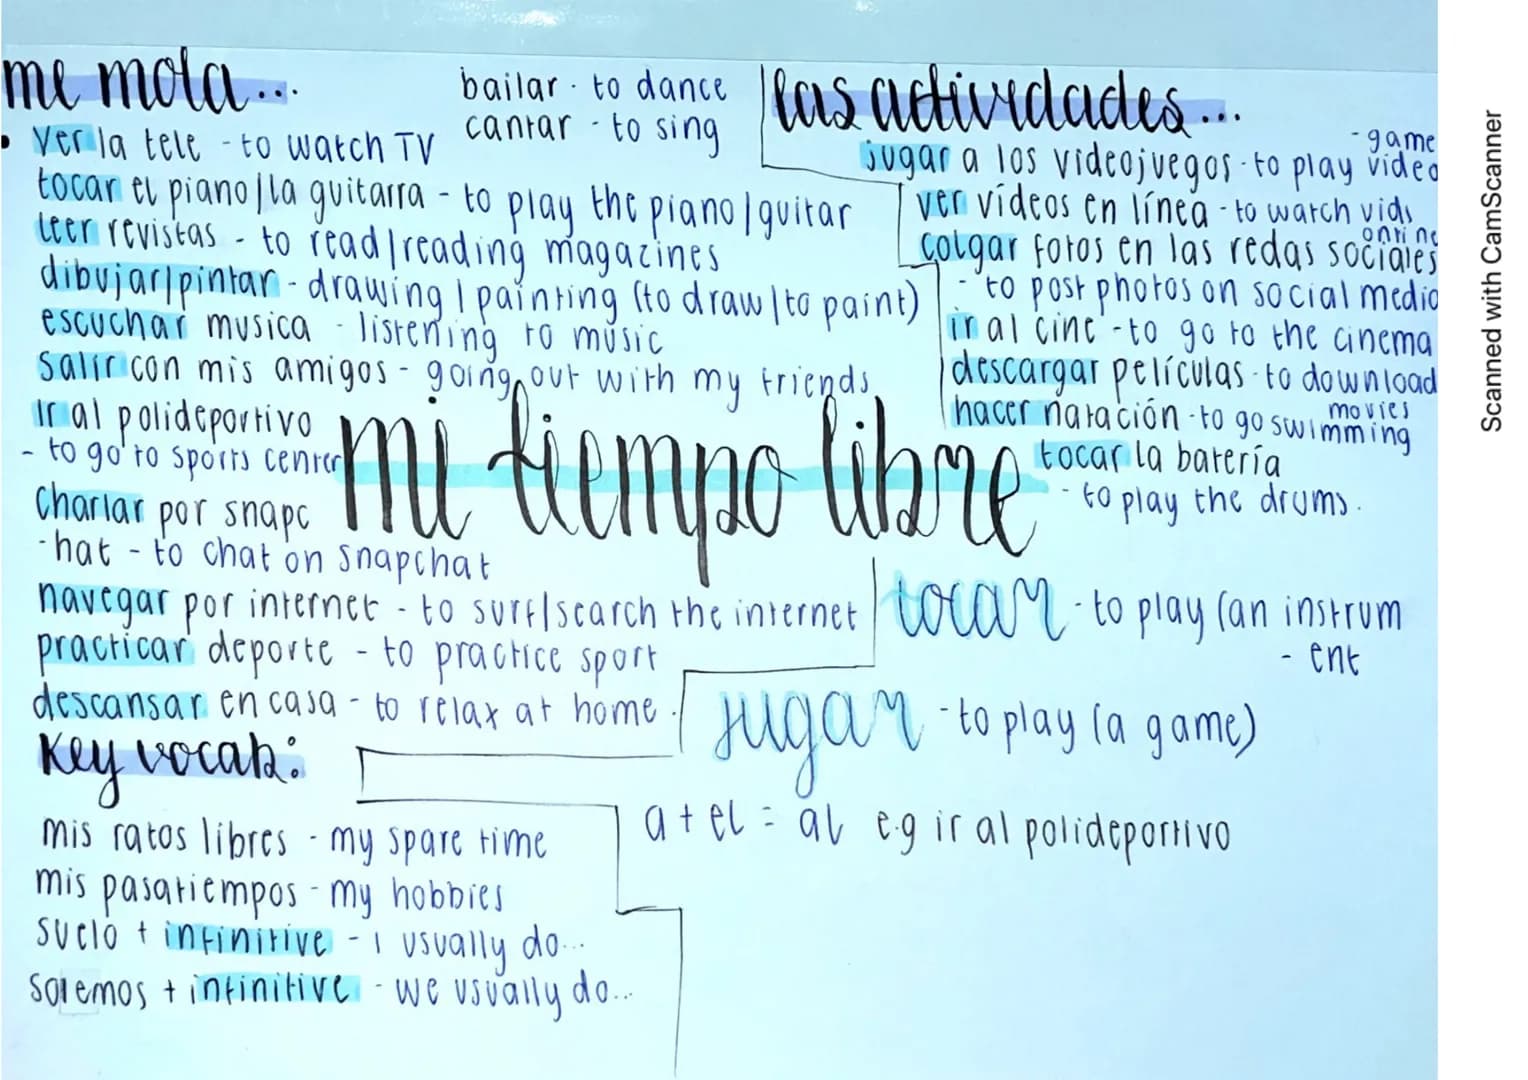 me mola...
• ver la tele - to watch TV
bailar - to dance
cantar - to sing
tocar el piano/la guitarra - to play the piano/guitar
leer revistas - to read/reading magazines
dibujar/pintar - drawing/painting (to draw/to paint)
escuchar musica - listening to music
salir con mis amigos - going out with my friends
ir al polideportivo
- to go to sports center
charlar por snapc
-hat - to chat on snapchat
navegar por internet - to surf/search the internet
practicar deporte - to practice sport
descansar en casa - to relax at home
mi tiempo libre
las actividades...
- game
jugar a los videojuegos - to play video
ver vídeos en línea - to watch vids
online
colgar fotos en las redas sociales
- to post photos on social media
ir al cine - to go to the cinema
descargar películas - to download
movies
hacer natación - to go swimming
tocar la batería
- to play the drums.
tocar - to play (an instrum
- ent
jugar - to play (a game)
a + el = al e.g ir al polideportivo
key vocab:
mis ratos libres - my spare time
mis pasatiempos - my hobbies
suelo + infinitive - I usually do...
solemos + infinitive - we usually do...
Scanned with CamScanner